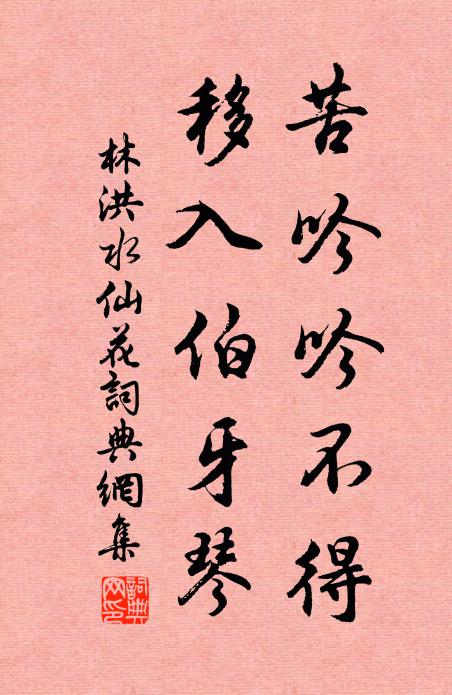 苦吟吟不得
移入伯牙琴
林洪水仙花詞典網集
詞典网印